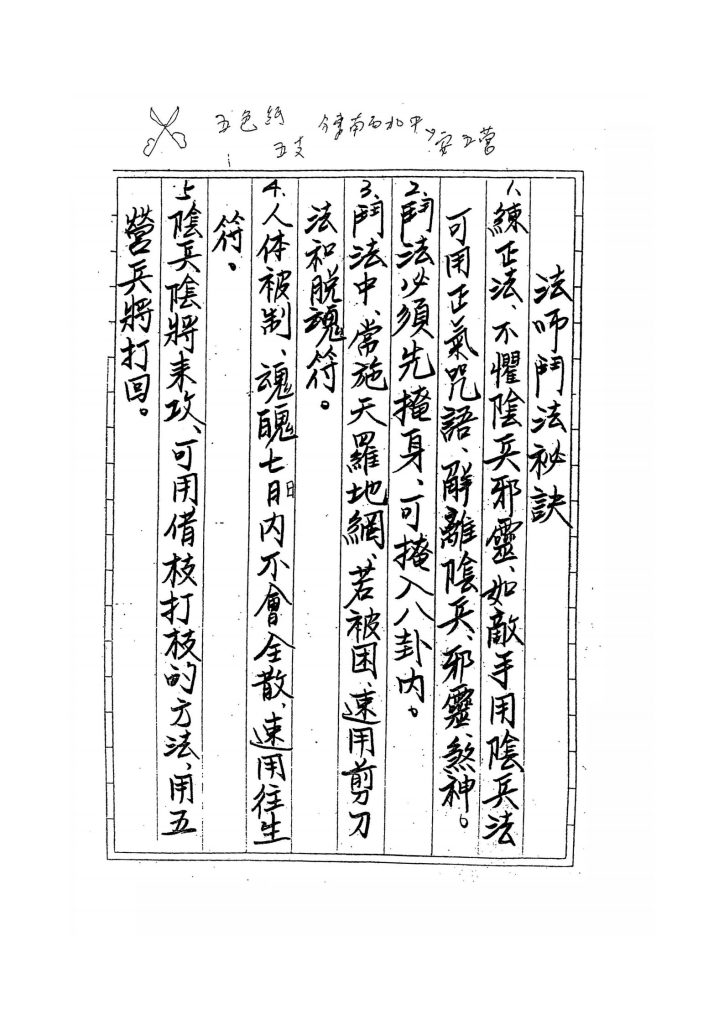 五色紙
五支
南西北中
安五營
法師鬥法祕訣
1.練正法、不懼陰兵邪靈、如敵手用陰兵法
可用正氣咒語、解離陰兵、邪靈、煞神。
2.鬥法必須先掩身、可掩入八卦內。
3.鬥法中、常施天羅地網、若被困、速用剪刀
法和脫魂符。
4.人体被制、魂魄七日內不會全散、速用往生
符。
5.陰兵陰將來攻、可用借枝打枝的方法、用五
營兵將打回。